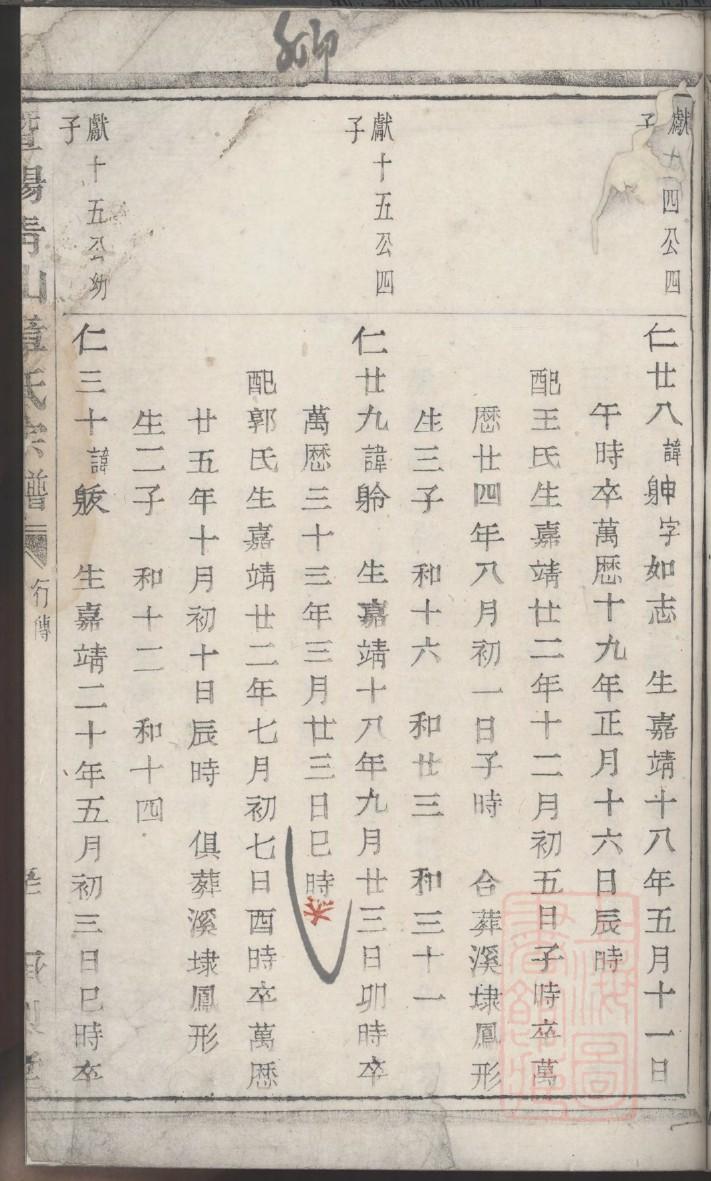 獻十四公四
子
仁廿八諱䠶字如志　生嘉靖十八年五月十一日
午時卒萬歷十九年正月十六日辰時
配王氏生嘉靖廿二年十二月初五日子時卒萬
歷廿四年八月初一日子時　合葬溪埭鳳形
生三子　和十六　和廿三　和三十一
獻十五公四
子
仁廿九諱　生嘉靖十八年九月廿三日卯時卒
萬歷三十三年三月廿三日巳時
配郭氏生嘉靖廿二年七月初七日酉時卒萬歷
廿五年十月初十日辰時　俱葬溪埭鳳形
生二子　和十二　和十四
獻十五公幼
子
仁三十諱　生嘉靖二十年五月初三日巳時卒
暨陽青山章氏宗譜
行傳